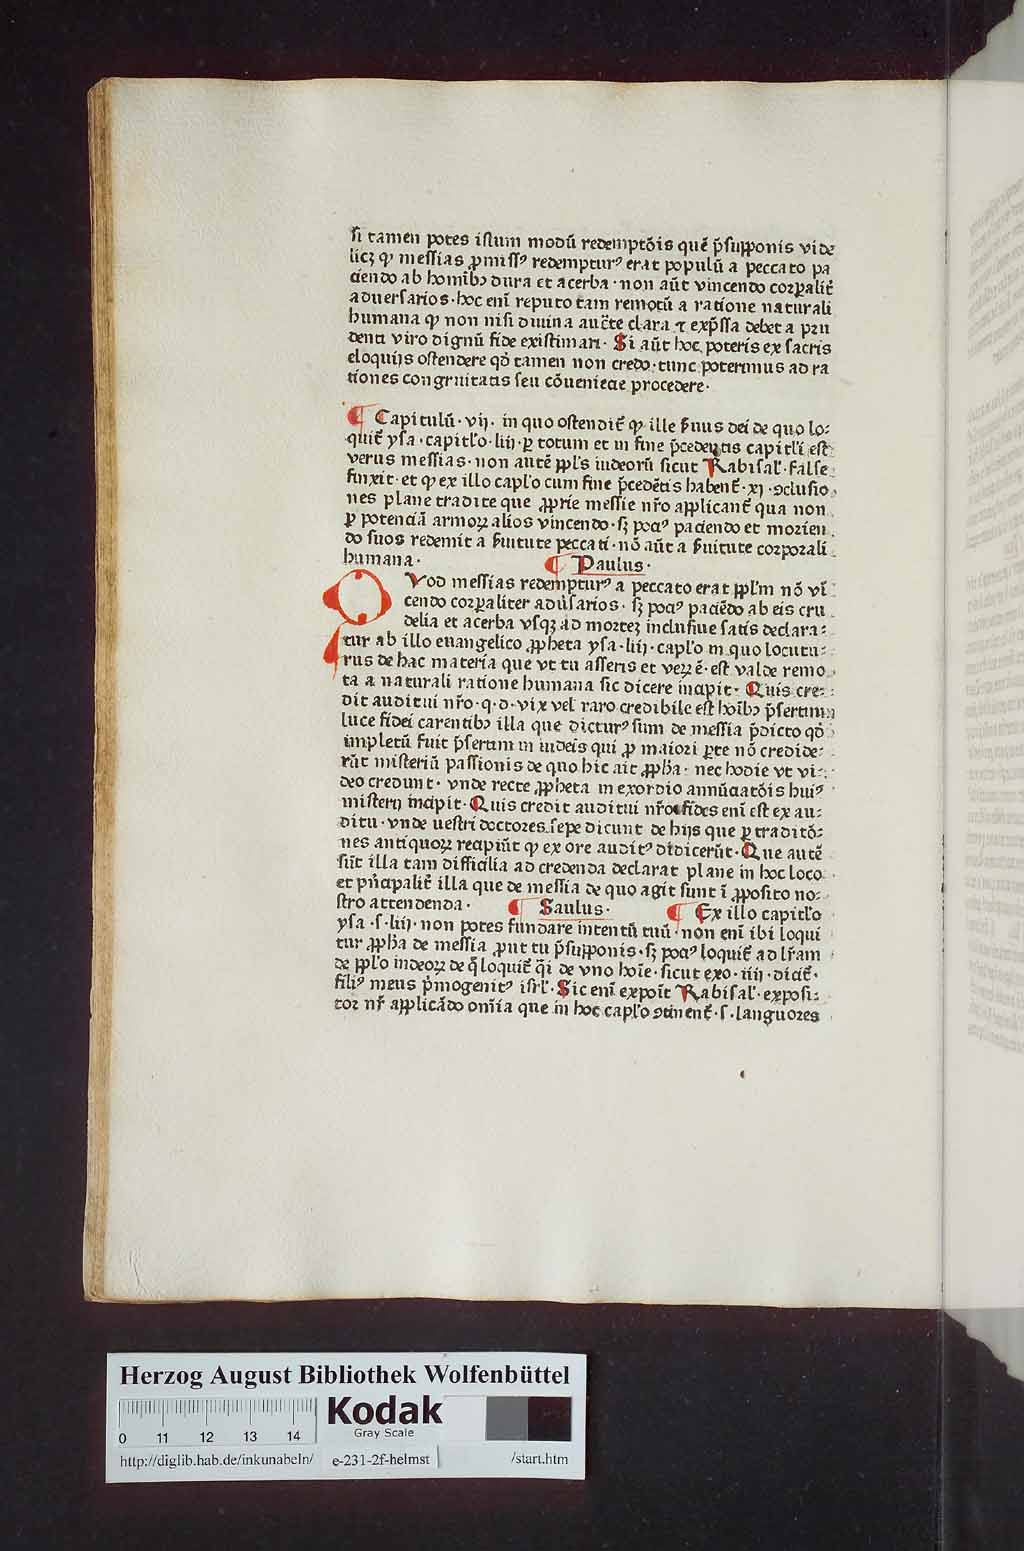 si tamen potes istum modū redemptōis quē p̄supponis vide
licꝫ ꝙ messias ꝓmissꝰ redempturꝰ erat populū a peccato pa
ciendo ab homībꝰ dura et acerba · non aūt vincendo corꝑalit̄
aduersarios · hoc enī reputo tam remotū a ratione naturali
humana ꝙ non nisi diuina auct̄e clara ⁊ exp̄ssa debet a pru
denti viro dignū fide existimari · Si aūt hoc poteris ex sacris
eloquijs ostendere qd̄ tamen non credo · tunc poterimus ad ra
tiones congruitatis seu cōuenietie procedere ·
¶ Capitulū · vij · in quo ostendit̄ ꝙ ille s̄uus dei de quo lo-
quit̄ ysa · capitl̓o · liij · ꝑ totum et in fine p̄cedentis capitl̓i est
verus messias · non autē ppl̓s iudeorū sicut Rabisal̓ · false
finxit · et ꝙ ex illo capl̓o cum fine p̄cedētis habent̄ · xj · ꝯclusio
nes plane tradite que ꝓprie messie nr̄o applicant̄ qua non
ꝑ potenciā armoꝝ alios vincendo · sꝫ pociꝰ paciendo et morien
do suos redemit a s̄uitute peccati · nō aūt a s̄uitute corporali
humana · ¶ Paulus ·
QVod messias redempturꝰ a peccato erat ppl̓m nō vī
cendo corꝑaliter adu̓sarios · sꝫ pociꝰ paciēdo ab eis cru
delia et acerba vsqꝫ ad morteꝫ inclusiue satis declara-
tur ab illo euangelico ꝓpheta ysa · liij · capl̓o in quo locutu-
rus de hac materia que vt tu asseris et veꝝ ē · est valde remo
ta a naturali ratione humana sic dicere incipit · Quis cre-
dit auditui nr̄o · q · d · vix vel raro credibile est hoībꝰ p̄sertim
luce fidei carentibꝰ illa que dicturꝰ sum de messia p̄dicto qd̄
impletū fuit p̄sertim in iudeis qui ꝓ maiori ꝑte nō credide-
rūt misteriū passionis de quo hic ait ꝓph̄a · nec hodie vt vi-
deo credunt · vnde recte ꝓpheta in exordio annūciatōis huiꝰ
misterij incipit · Quis credit auditui nr̄o · fides enī est ex au-
ditu · vnde uestri doctores sepe dicunt de hijs que ꝑ traditō-
nes antiquoꝝ recipiūt ꝙ ex ore auditꝰ didicerūt · Que autē
sūt illa tam difficilia ad credenda declarat plane in hoc loco
et pn̄cipalit̄ illa que de messia de quo agit sunt ī ꝓposito no-
stro attendenda · ¶ Saulus · ¶ Ex illo capitl̓o
ysa · s · liij · non potes fundare intentū tuū · non enī ibi loqui
tur ꝓph̄a de messia ꝓut tu p̄supponis · sꝫ pociꝰ loquit̄ ad lr̄am
de ppl̓o iudeoꝝ de q̄ loquit̄ q̄i de vno hoīe · sicut exo · iiij · dicit̄ ·
filiꝰ meus p̄mogenitꝰ isrl̓ · Sic enī expoīt Rabisal̓ · exposi-
tor nr̄ applicādo om̄ia que in hoc capl̓o ꝯtinent̄ · s · languores
Herzog August Bibliothek Wolfenbüttel
Kodak
Gray Scale
0 11 12 13 14
http://diglib.hab.de/inkunabeln/ e-231-2f-helmst /start.htm